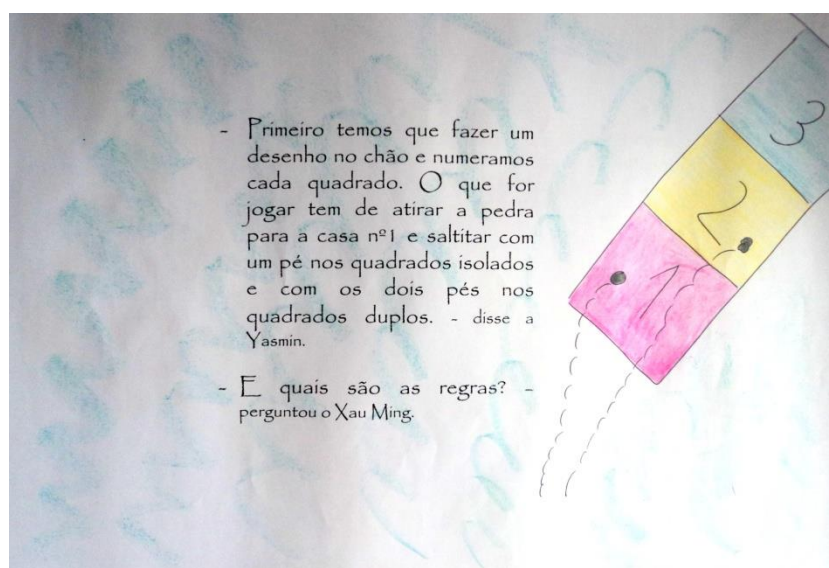 - Primeiro temos que fazer um
desenho no chão e numeramos
cada quadrado. O que for
jogar tem de atirar a pedra
para a casa nº1 e saltitar com
um pé nos quadrados isolados
e com os dois pés nos
quadrados duplos. - disse a
Yasmin.
- E quais são as regras? -
perguntou o Xau Ming.
3
2
1